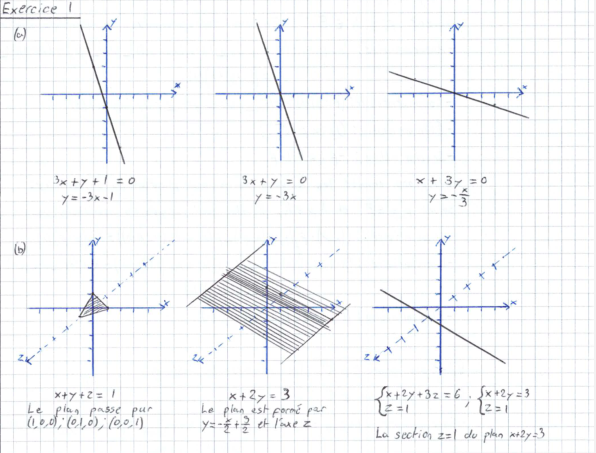 Exercice 1
(a)
y
x
y
x
y
x
3x + y + 1 = 0
y = -3x - 1
3x + y = 0
y = -3x
x + 3y = 0
y = -x/3
(b)
y
x
z
y
x
z
y
x
z
x+y+z = 1
Le plan passe par
(1,0,0); (0,1,0); (0,0,1)
x + 2y = 3
Le plan est formé par
y = -x/2 + 3/2 et l'axe z
{x+2y+3z=6 ; {x+2y=3
{z=1 {z=1
La section z=1 du plan x+2y=3